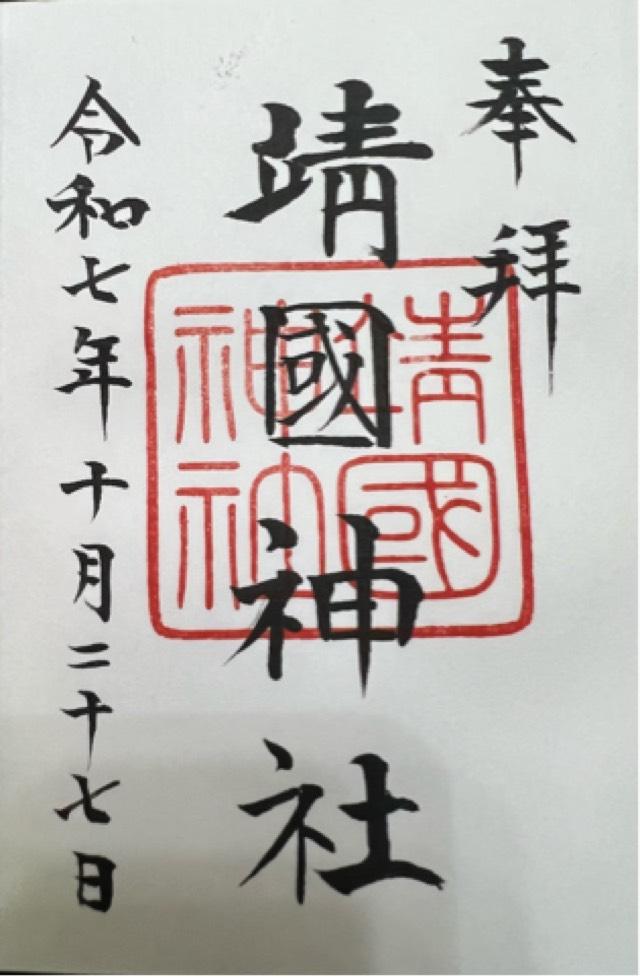 奉拝
靖國神社
靖國
神社
令和七年十月二十七日